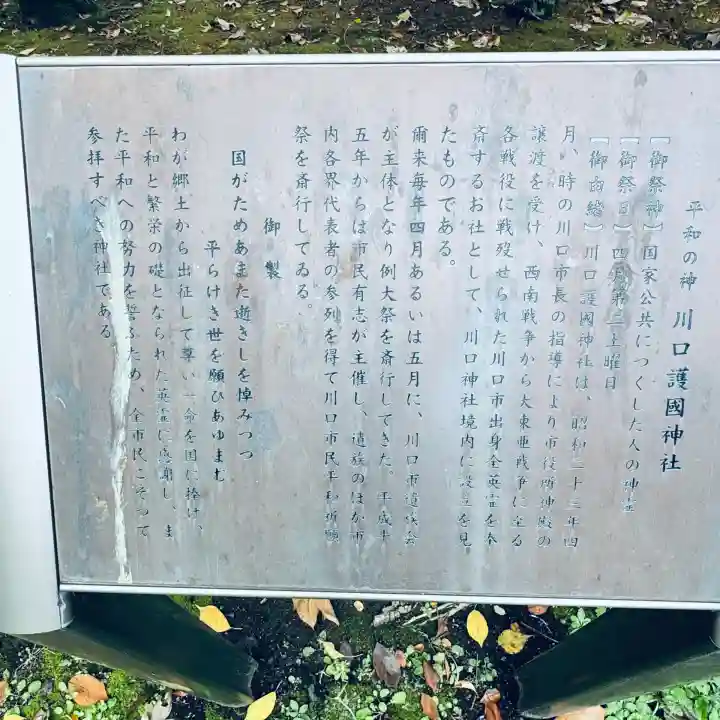 平和の神 川口護國神社
〔御祭神〕国家公共につくした人の神霊
〔御祭日〕四月第二土曜日
〔御由緒〕川口護國神社は、昭和二十三年四
月、時の川口市長の指導により市役所神殿の
譲渡を受け、西南戦争から大東亜戦争に至る
各戦役に戦歿せられた川口市出身全英霊を奉
斎するお社として、川口神社境内に設立を見
たものである。
爾来毎年四月あるいは五月に、川口市遺族会
が主体となり例大祭を斎行してきた。平成十
五年からは市民有志が主催し、遺族のほか市
内各界代表者の参列を得て川口市民平和祈願
祭を斎行してゐる。
御製
国がためあまた逝きしを悼みつつ
平らけき世を願ひあゆまむ
わが郷土から出征して尊い一命を国に捧げ、
平和と繁栄の礎となられた英霊に感謝し、ま
た平和への努力を誓ふため、全市民こぞって
参拝すべき神社である